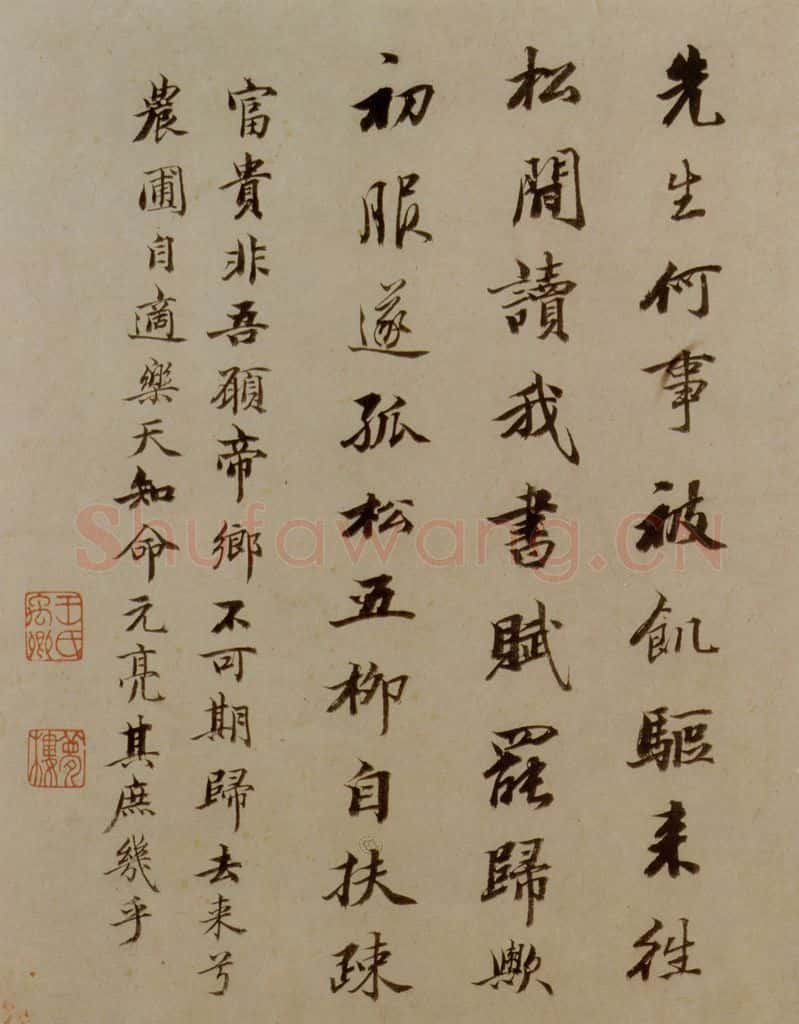 先生何事被飢驅来往
松間讀我書賦罷歸歟
初服遂孤松五柳自扶疎
富貴非吾願帝鄉不可期歸去来兮
農圃自適樂天知命元亮其庶幾乎
王氏禹卿
夢樓
Shufawang.CN